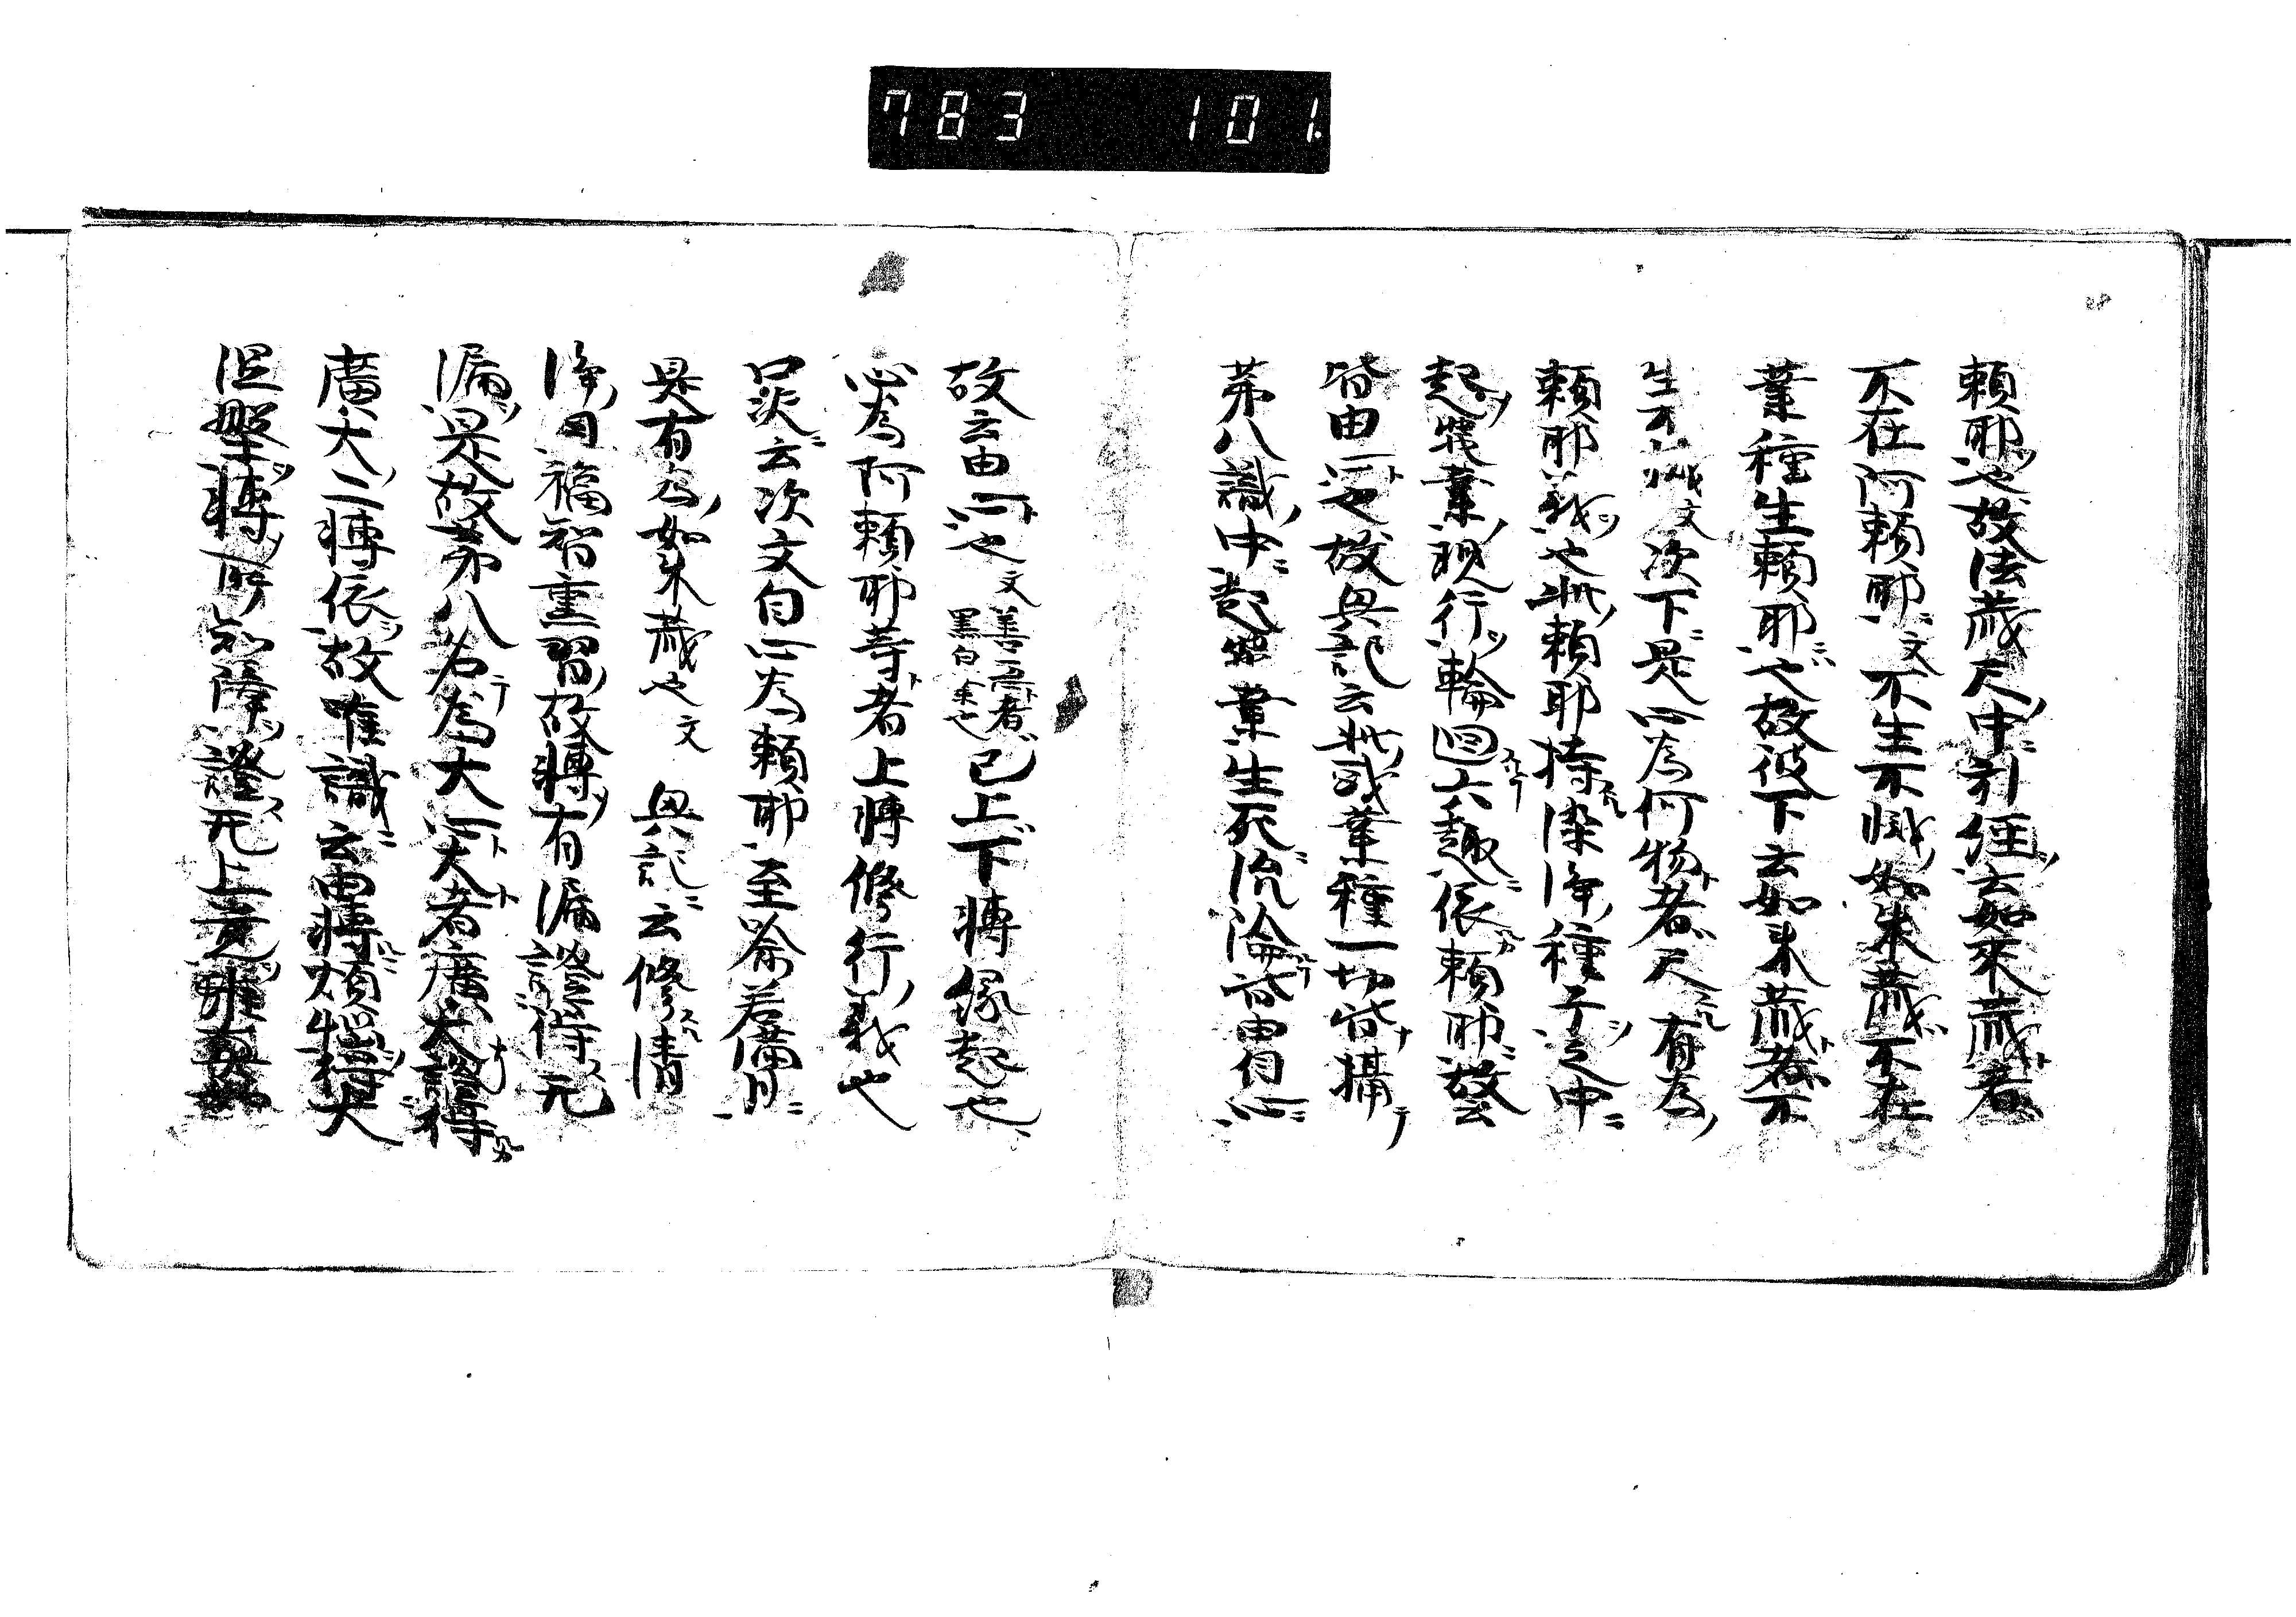 783 101
頼耶也故法蔵尺中引経云如来蔵者
不在阿頼耶文不生不滅如来蔵不在
業種生頼耶也故彼下云如来蔵者不
生不滅文次下是心為何物者尺有為
頼耶義也此頼耶持染浄種子之中
起惑業現行輪回六趣依頼耶故云
皆由心也故與記云此惑業種一切皆摂
第八識中起惑業生死流淪皆由自心
故云由心也文善悪者黒白業也已上下轉縁起也
心為阿頼耶等者上轉修行義也
云次文自心為頼耶至若満月
是有為如来蔵也文與記云修清
浄因福智熏習故轉有漏證得无
漏是故第八名為大心大者広大證得
廣大二轉依故唯識云由轉煩悩得大
涅槃轉所知障證无上覚